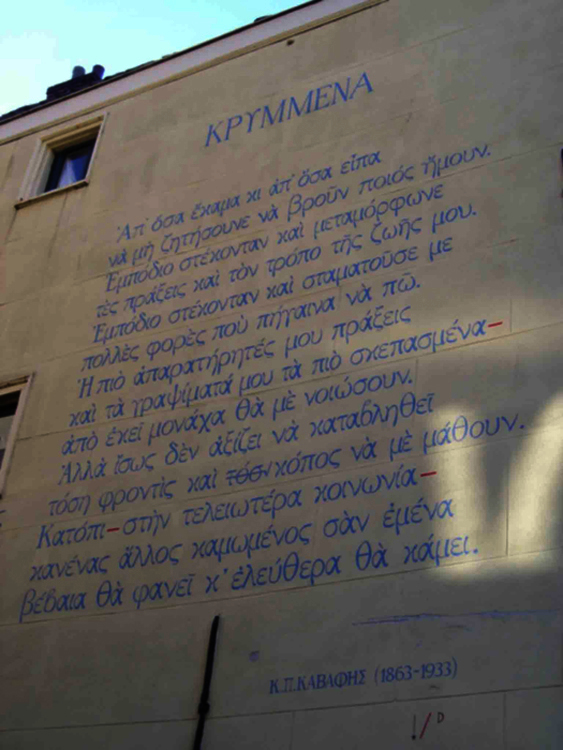 ΚΡΥΜΜΕΝΑ
Ἀπ' ὅσα ἔκαμα κι ἀπ' ὅσα εἶπα
νὰ μὴ ζητήσουνε νὰ βροῦν ποιός ἤμουν.
Ἐμπόδιο στέκονταν καὶ μεταμόρφωνε
τὲς πράξεις καὶ τὸν τρόπο τῆς ζωῆς μου.
Ἐμπόδιο στέκονταν καὶ σταματοῦσε με
πολλὲς φορὲς ποὺ πήγαινα νὰ πῶ.
Ἡ πιὸ ἀπαρατήρητές μου πράξεις
καὶ τὰ γραψίματά μου τὰ πιὸ σκεπασμένα—
ἀπὸ ἐκεῖ μονάχα θὰ μὲ νοιώσουν.
Ἀλλὰ ἴσως δὲν ἀξίζει νὰ καταβληθεῖ
τόση φροντὶς καὶ τόσος κόπος νὰ μὲ μάθουν.
Κατόπι—στὴν τελειωτέρα κοινωνία—
κανένας ἄλλος καμωμένος σὰν ἐμένα
βέβαια θὰ φανεῖ κ' ἐλεύθερα θὰ κάμει.
Κ.Π.ΚΑΒΑΦΗΣ (1863-1933)